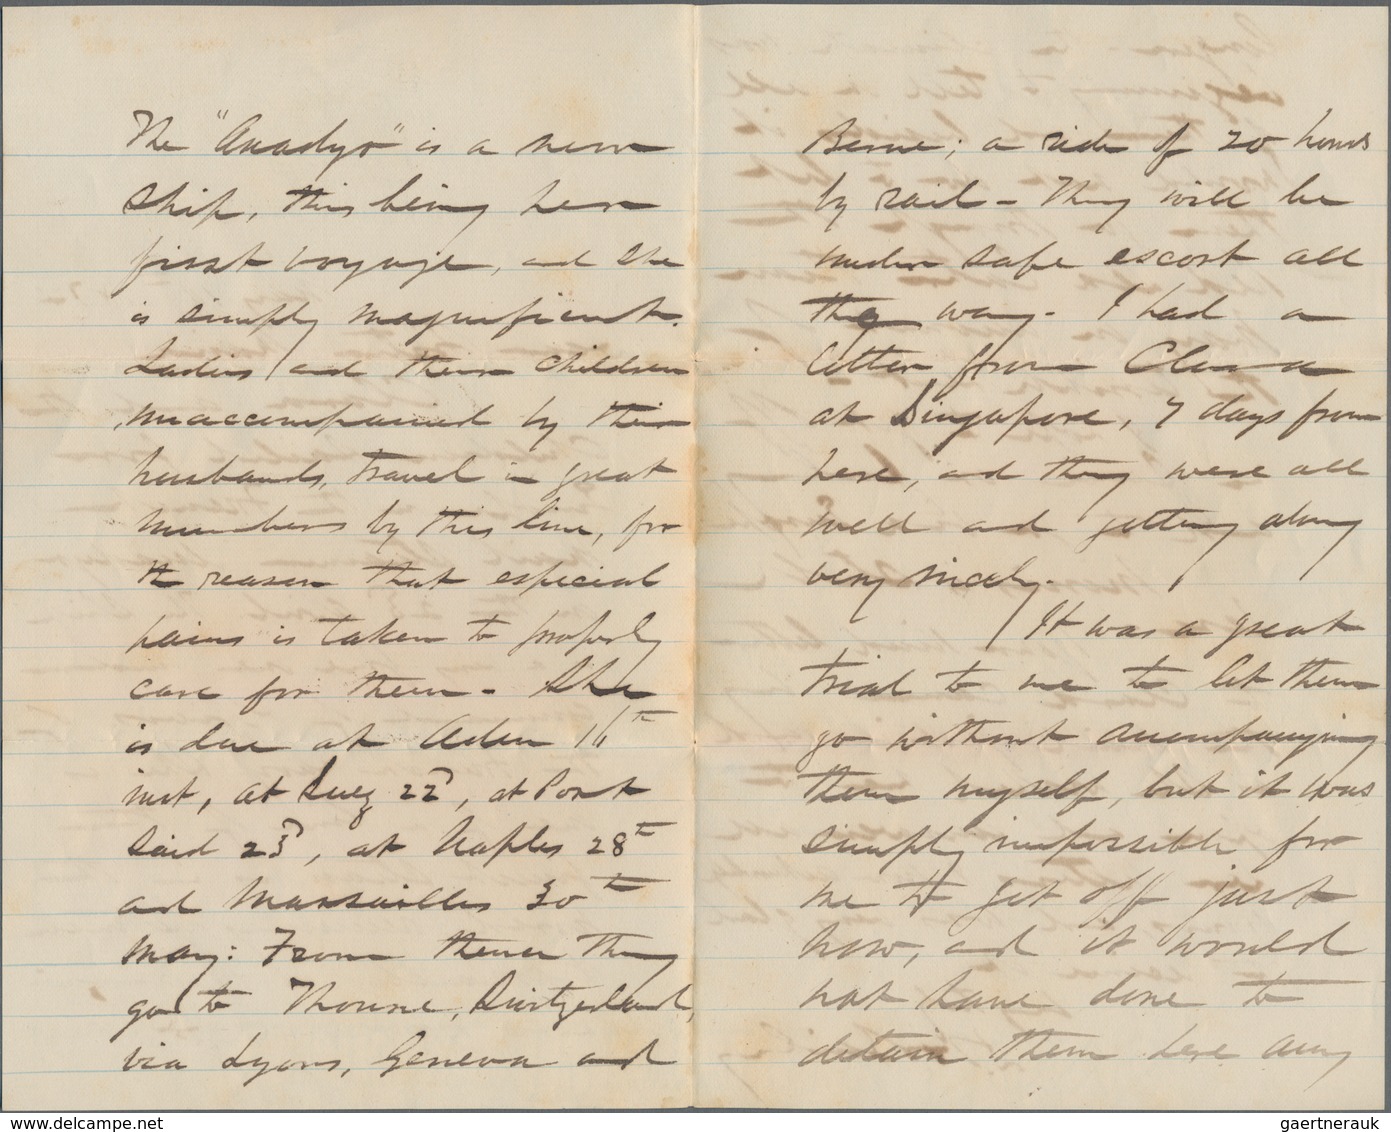 The "Anadyr" is a new
ship, this being her
first voyage, and she
is simply magnificent.
Ladies and their children
unaccompanied by their
husbands, travel in great
numbers by this line, for
the reason that especial
pains is taken to properly
care for them - She
is due at Aden 16th
inst, at Suez 22d, at Port
Said 23d, at Naples 28th
and Marsailles 30th
May: From thence they
go to Thoune, Switzerland,
via Lyons, Geneva and
Berne; a ride of 20 hours
by rail - They will be
under safe escort all
the way. I had a
letter from Clara
at Singapore, 7 days from
here, and they were all
well and getting along
very nicely.
It was a great
trial to me to let them
go without accompanying
them myself, but it was
simply impossible for
me to get off just
now, and it would
not have done to
detain them here any
www.delcampe.net
gaertnerauk